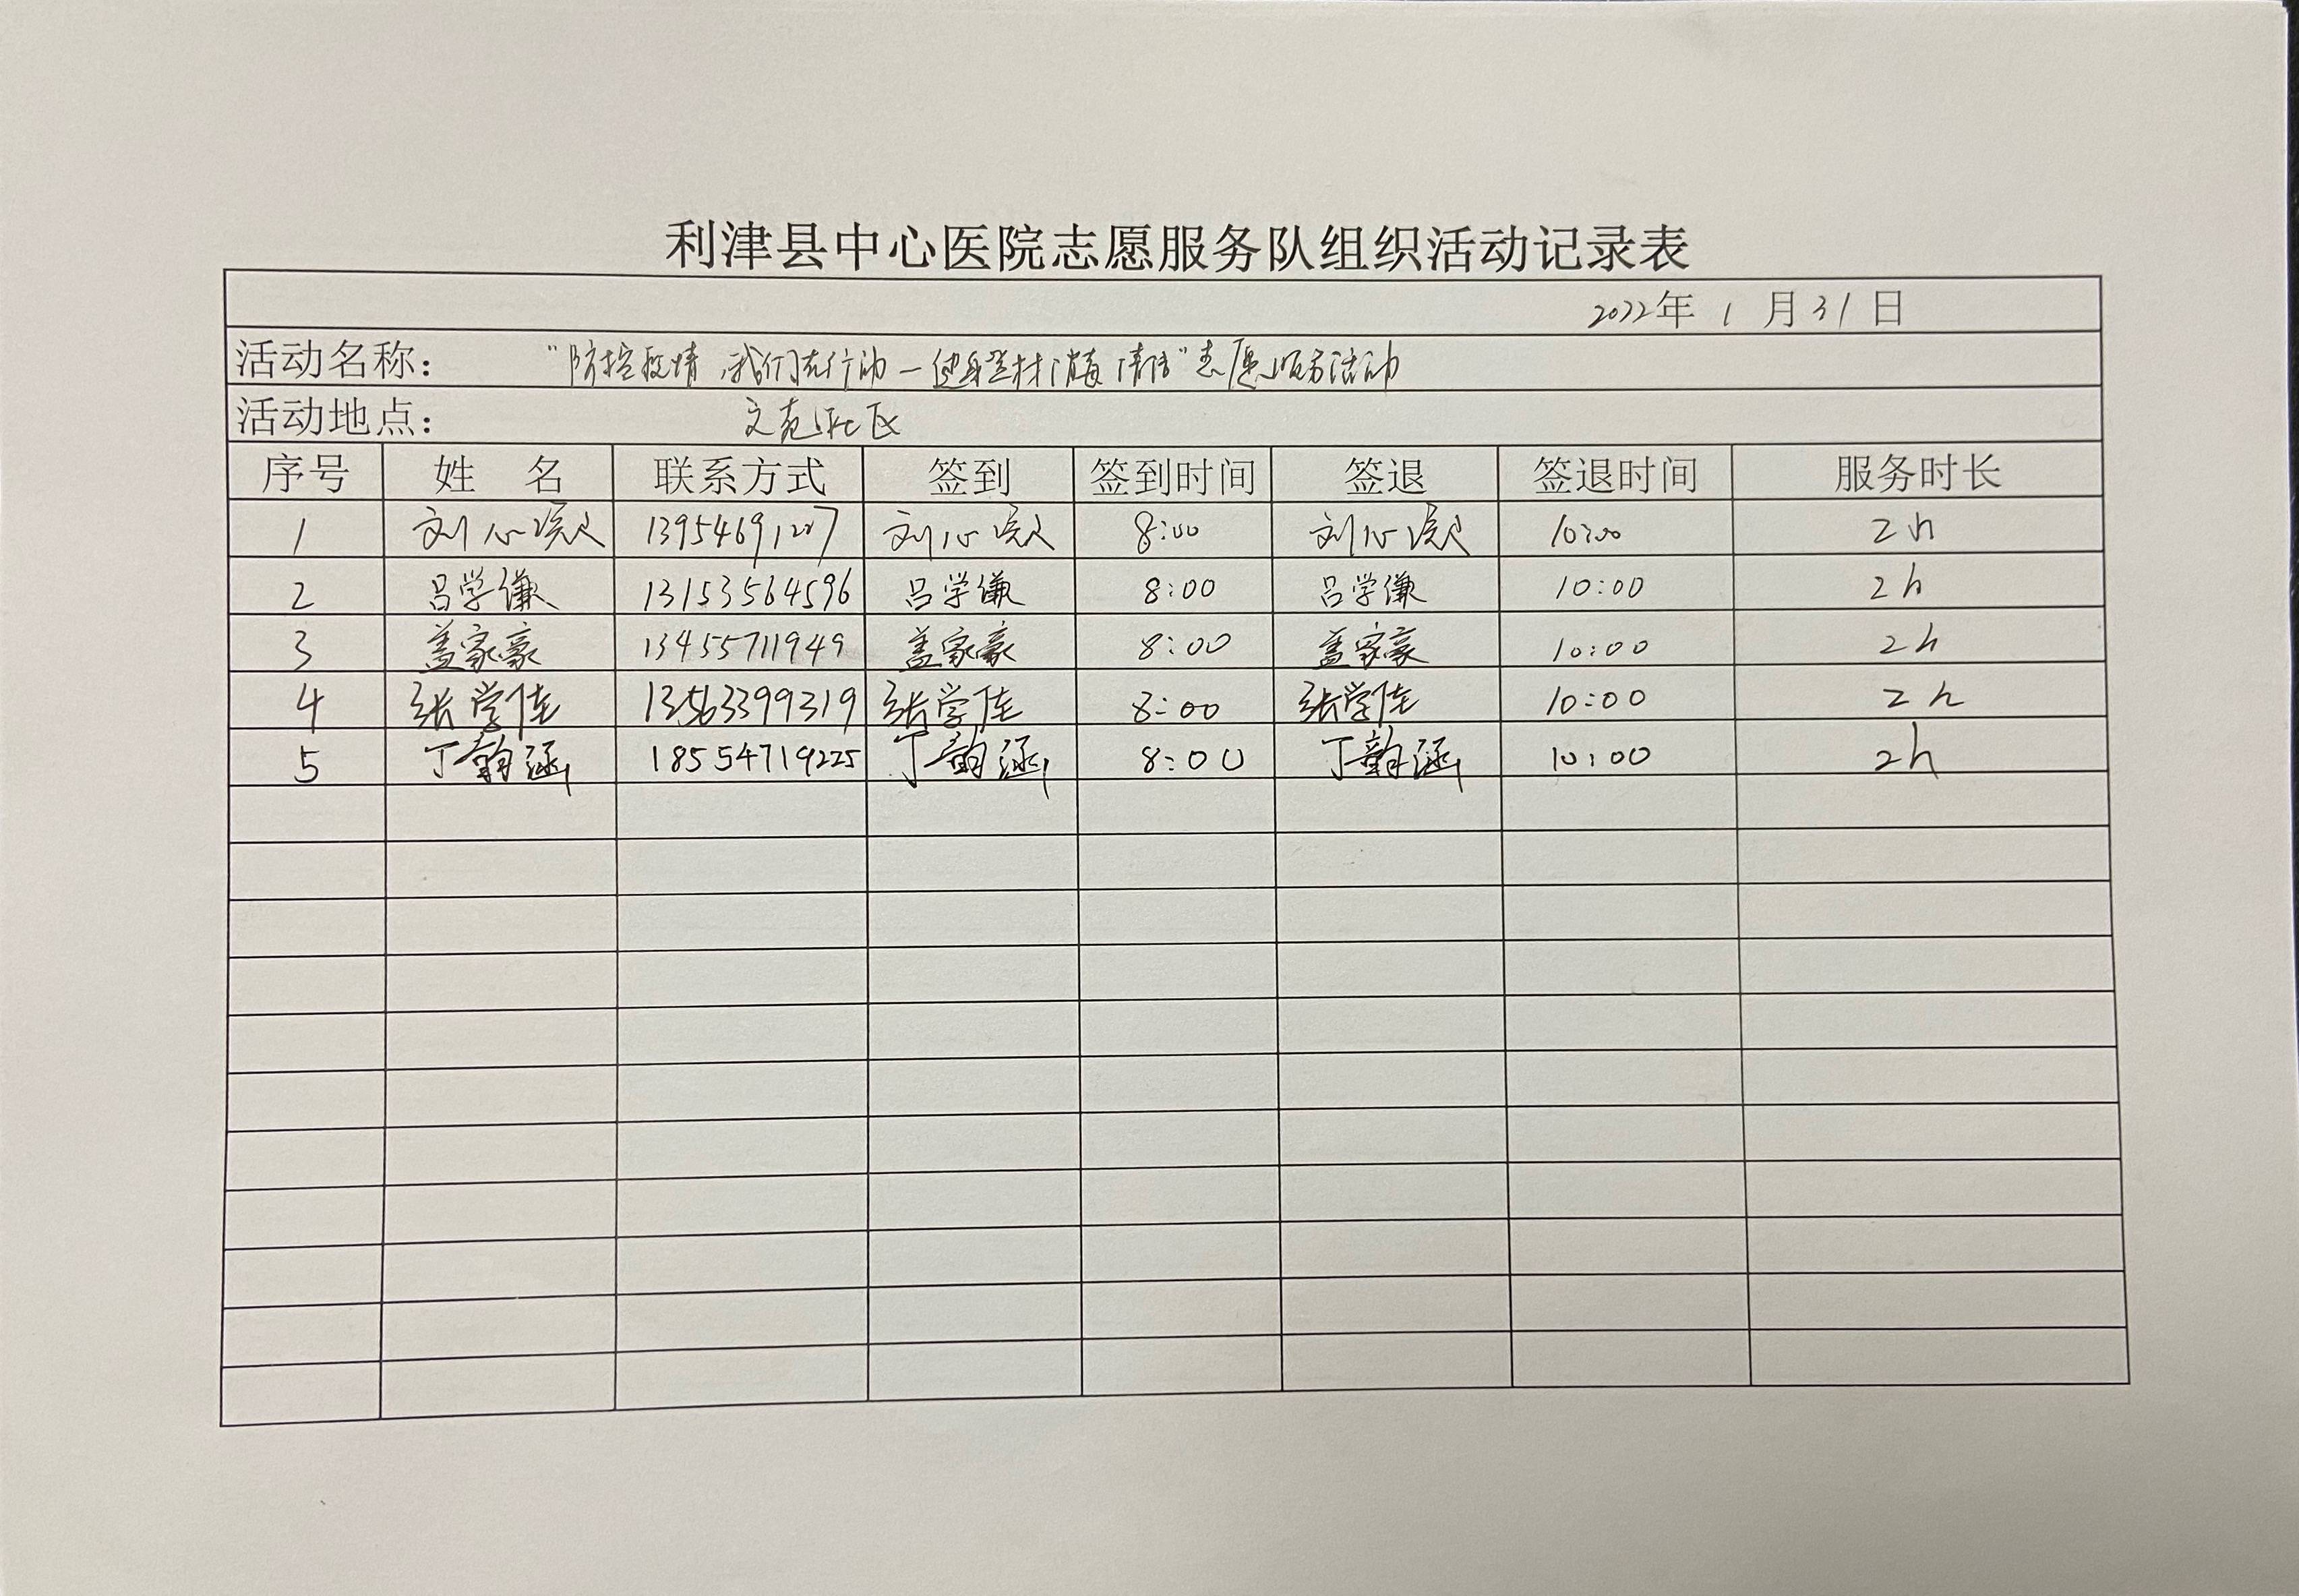 利津县中心医院志愿服务队组织活动记录表
2022年 1 月 31 日
活动名称： "防控疫情，我们在行动—健身器材消毒清洁"志愿服务活动
活动地点： 文苑社区
序号 姓 名 联系方式 签到 签到时间 签退 签退时间 服务时长
1 刘心 13954691207 刘心 8:00 刘心 10:00 2h
2 吕学谦 13153564596 吕学谦 8:00 吕学谦 10:00 2h
3 盖家豪 13455711949 盖家豪 8:00 盖家豪 10:00 2h
4 张学佳 13563399319 张学佳 8:00 张学佳 10:00 2h
5 丁韵涵 18554719225 丁韵涵 8:00 丁韵涵 10:00 2h